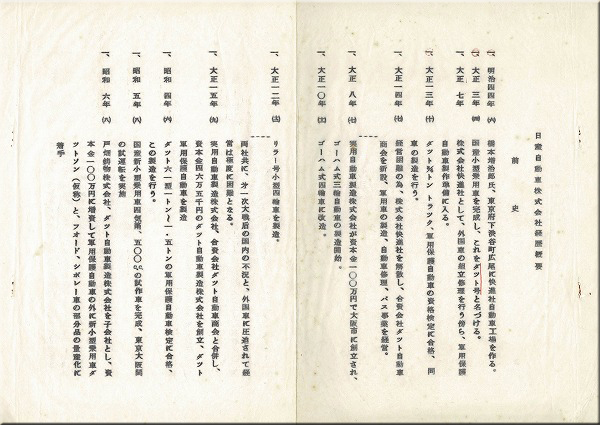 日産自動車株式会社経歴概要
前史
一、明治四四年(六) 橋本増治郎氏、東京府下渋谷町広尾に快進社自動車工場を作る。
一、大正三年(四) 国産小型乗用車を完成し、これをダット号と名づける。
一、大正七年 株式会社快進社として、外国車の組立修理を行う傍ら、軍用保護
自動車製作準備に入る。
一、大正一三年(十) ダット¾トン トラック、軍用保護自動車の資格検定に合格、同
車の製造を行う。
一、大正一四年(七) 経営困難の為、株式会社快進社を解散し、合資会社ダット自動車
商会を新設、軍用車の製造、自動車修理、バス事業を経営。
一、大正八年(七) 実用自動車製造株式会社が資本金一〇〇万円で大阪市に創立され、
ゴーハム式三輪自動車の製造開始。
一、大正一〇年 ゴーハム式四輪車に改造。
一、大正一二年 リラー号小型四輪車を製造。
両社共に、第一次大戦后の国内の不況と、外国車に圧迫されて経
営は極度に困難となる。
一、大正一五年(九) 実用自動車製造株式会社、合資会社ダット自動車商会と合併し、
資本金四六万五千円のダット自動車製造株式会社を創立、ダット
軍用保護自動車を製造
一、昭和四年(六) ダット六一型一トン〜一・五トンの軍用保護自動車検定に合格、
この製造を行う。
一、昭和五年(八) 国産新小型乗用車四気筒、五〇〇c.c.の試作車を完成、東京大阪間
の試運転を実施
一、昭和六年(八) 戸畑鋳物株式会社、ダット自動車製造株式会社を子会社とし、資
本金一〇〇万円に増資して軍用保護自動車の外に新小型乗用車ダ
ットソン(仮称)と、フォード、シボレー車の部分品の量産化に
着手